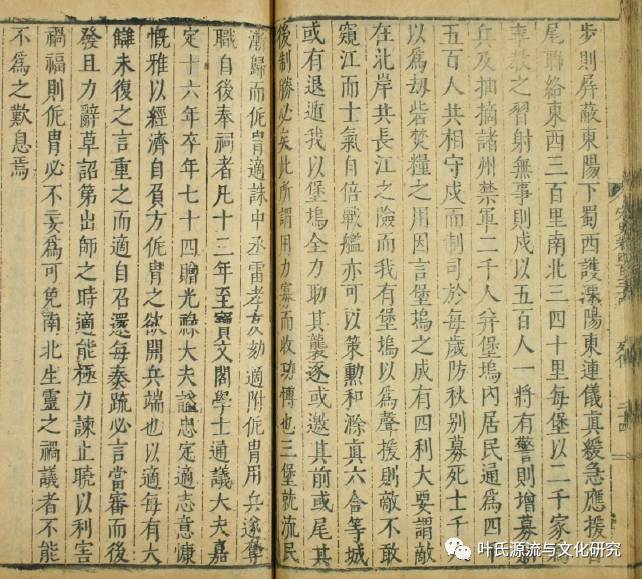 步則屏蔽東陽下蜀西護溧陽東連儀真緩急應援
尾聯絡東西三百里南北三四十里每堡以二千家為
率教之習射無事則戍以五百人一將有警則增募
兵及抽摘諸州禁軍二千人并堡塢內居民通為四千
五百人共相守戍而制司於每歲防秋別募死士千人
以為刼砦焚糧之用因言堡塢之成有四利大要謂敵
在北岸共長江之險而我有堡塢以為聲援則敵不敢
窺江而士氣自倍戰艦亦可以策勳和滁真六合等城
或有退遁我以堡塢全力助其襲逐或邀其前或尾其
後制勝必矣此所謂用力寡而收功博也三堡就流民
漸歸而侂胄適誅中丞雷孝友劾適附侂胄用兵遂奪
職自後奉祠者凡十三年至寶文閣學士通議大夫嘉
定十六年卒年七十四贈光祿大夫謚忠定適志意慷
慨雅以經濟自負方侂胄之欲開兵端也以適每有大
讎未復之言重之而適自召還每奏疏必言當審而後
發且力辭草詔第出師之時適能極力諫止曉以利害
禍福則侂胄必不妄為可免南北生靈之禍議者不能
不為之歎息焉
叶氏源流与文化研究